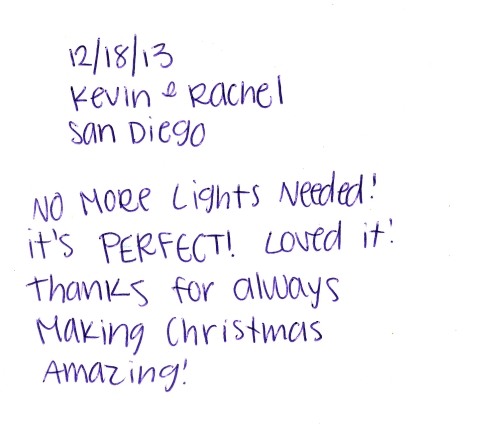 12/18/13
Kevin & Rachel
San Diego
NO MORE Lights Needed!
it's PERFECT! Loved it!
Thanks for always
Making Christmas
Amazing!